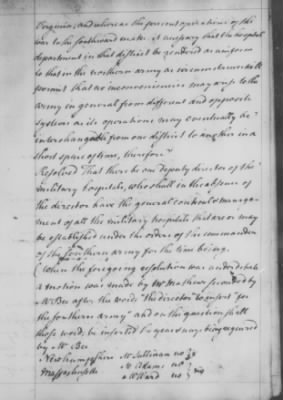 Virginia; and whereas the present operations of the
war to the southward make it necessary that the hospital
department in that district be rendered as uniform
to that in the northern army as circumstances will
permit that no inconveniencies may arise to the
army in general from different and opposite
systems as its operations may eventually be
interchangeable from one district to another in a
short space of time, therefore
Resolved That there be one deputy director of the
military hospitals, who shall in the absence of
the director have the general control & manage-
ment of all the military hospitals that are or may
be established under the orders of the commander
of the southern army for the time being.
(When the foregoing resolution was under debate
a motion was made by Mr Mathews seconded by
Mr Bee after the words "the director" to insert "for
the southern army" and on the question shall
those words be inserted the yeas & nays being required
by Mr Bee
Newhampshire Mr Sullivan no
Massachusetts Mr Adams no
Mr Ward no